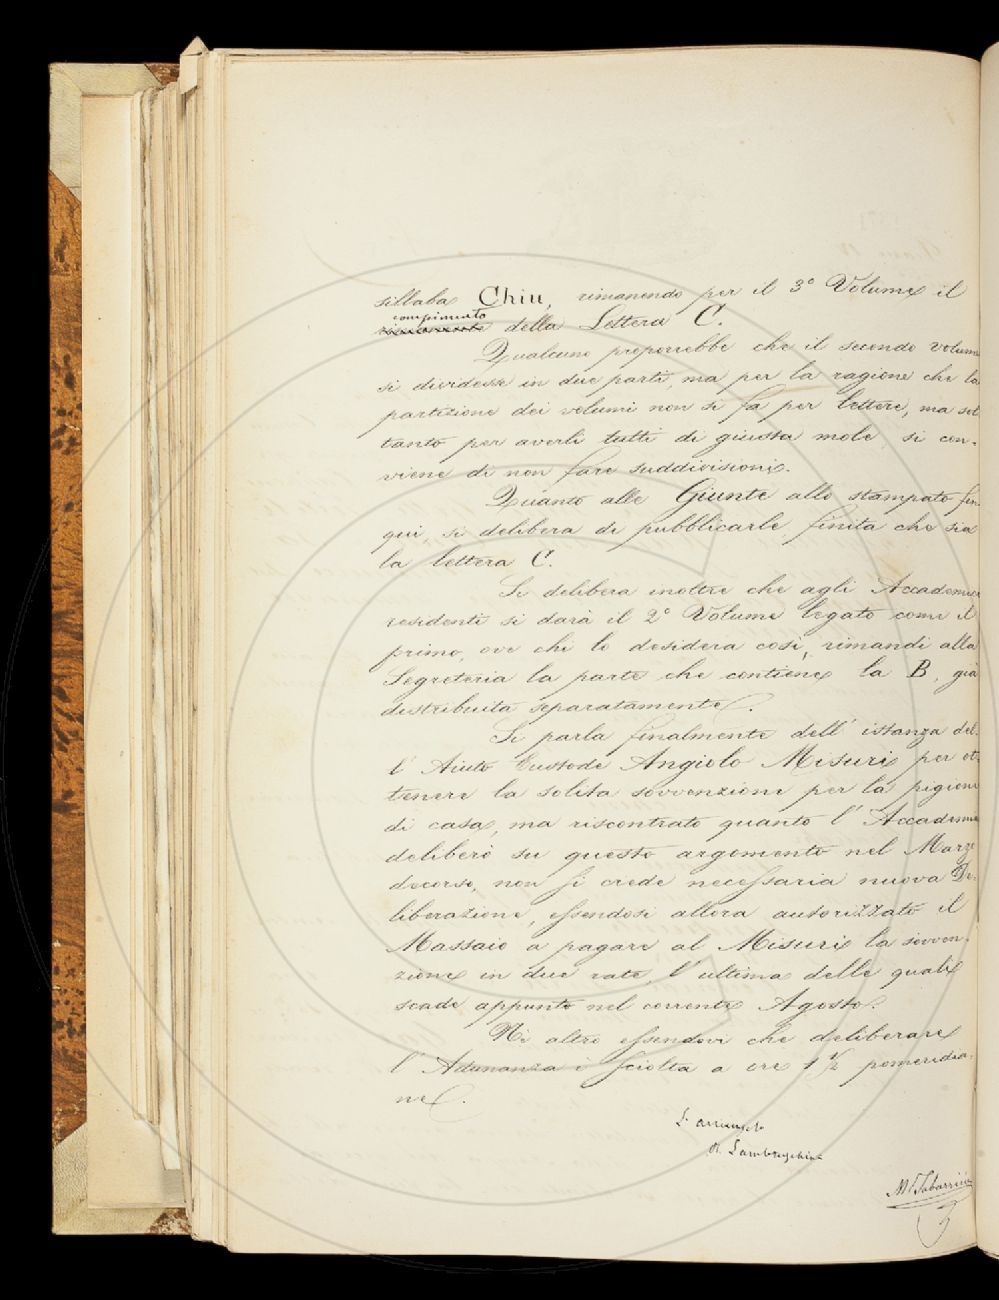 sillaba Chiu, rimanendo per il 3º Volume il
compimento
della Lettera C.
Qualcuno proporrebbe che il secondo volume
si dividesse in due parti, ma per la ragione che la
partizione dei volumi non si fa per lettere, ma sol
tanto per averli tutti di giusta mole si con-
viene di non fare suddivisioni.
Quanto alle Giunte allo stampato fin
qui, si delibera di pubblicarle finita che sia
la lettera C.
Si delibera inoltre che agli Accademici
residenti si darà il 2º Volume legato come il
primo, ove chi lo desidera così, rimandi alla
Segreteria la parte che contiene la B, già
distribuita separatamente.
Si parla finalmente dell' istanza del-
l' Aiuto Custode Angiolo Misuri per ot-
tenere la solita sovvenzione per la pigione
di casa, ma riscontrato quanto l' Accademia
deliberò su questo argomento nel Marzo
decorso, non si crede necessaria nuova De-
liberazione, essendosi allora autorizzato il
Massaio a pagare al Misuri la sovven-
zione in due rate, l' ultima delle quali
scade appunto nel corrente Agosto.
Nè altro essendovi che deliberare
l' Adunanza è sciolta a ore 1 1/2 pomeridia-
ne.
L' Arciconsolo
R. Lambruschini
M. Tabarrini